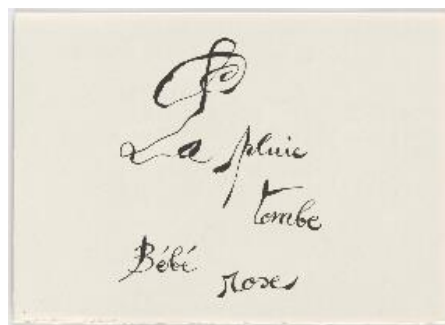 La pluie
tombe
Bébé
Roses